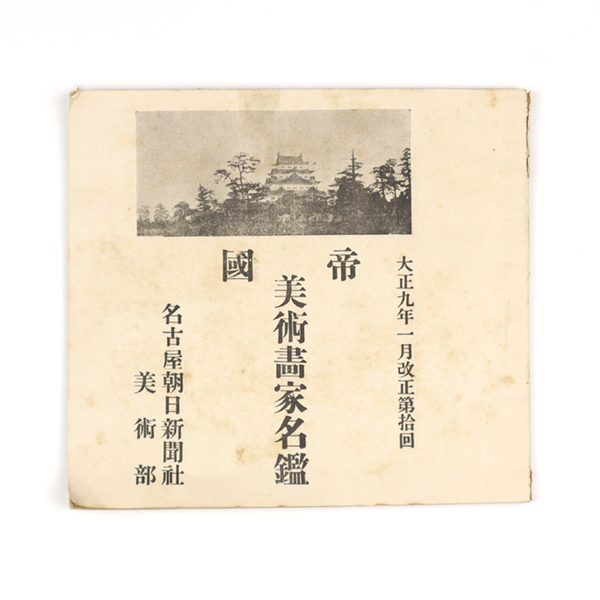 大正九年一月改正第拾回
帝國
美術畫家名鑑
名古屋朝日新聞社
美術部